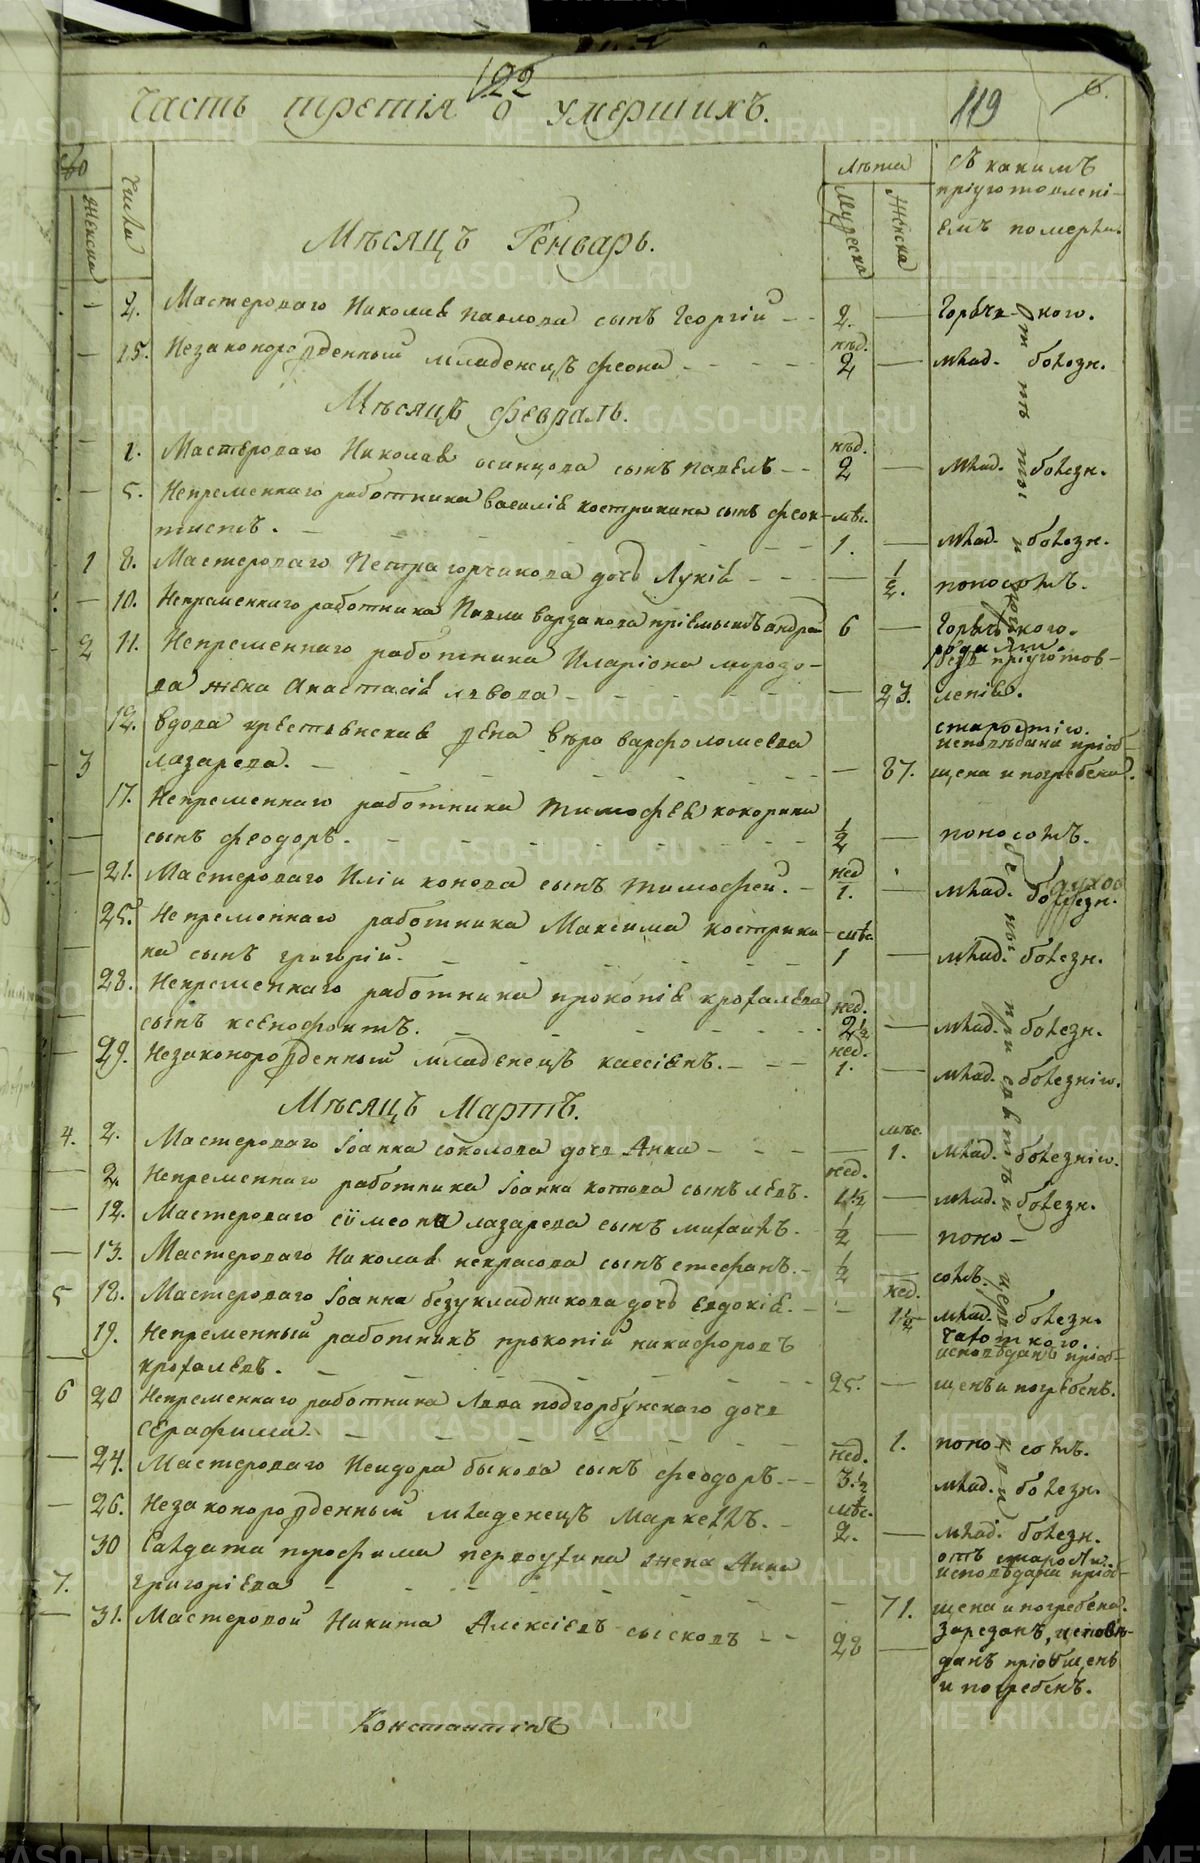 122
Часть третія о умершихъ.
119
Женска
Числа
лѣта
Мужеска
Женска
Съ какимъ
пріуготовлені-
емъ померли.
Мѣсяцъ Генварь.
2. Мастероваго Николая Павлова сынъ Георгій 2. Горячкою.
15. Незаконорожденный младенецъ Феона нед. 2 млад. болезн.
Мѣсяцъ Февраль.
1. Мастероваго Николая осинцова сынъ Павелъ нед. 2 млад. болезн.
5. Непременнаго работника Василія кострикина сынъ Феок-
тистъ. мѣс. 1. млад. болезн.
1 8. Мастероваго Петра горчакова дочь Лукія ½. поносомъ.
10. Непременнаго работника Павла варзакова пріемышъ андрей 6 Горячкою.
2 11. Непременнаго работника Иларіона морозо-
ва жена Анастасія львова 23. родами. безъ пріуготов-
ленія.
12. вдова крестьянская жена вѣра варфоломеева
3 лазарева. 87. старостію. исповѣдана пріоб-
щена и погребена.
17. Непременнаго работника тимофея кокорина
сынъ феодоръ. ½ поносомъ.
21. Мастероваго Иліи конова сынъ тимофей. нед 1. млад. болезн.
25. Непременнаго работника Максима кострики-
на сынъ григорій. мѣс. 1 млад. болезн.
28. Непременнаго работника прокопія крохалева
сынъ ксенофонтъ. нед. 2½ млад. болезн.
29. Незаконорожденный младенецъ кассіянъ. нед. 1. млад. болезнію.
Мѣсяцъ Мартъ.
4. 2. Мастероваго Іоанна соколова дочь Анна мѣс. 1. млад. болезнію.
2. Непременнаго работника Іоанна котова сынъ левъ. нед. 1½ млад. болезн.
12. Мастероваго сѵмеона лазарева сынъ михаилъ. ½ поно-
13. Мастероваго Николая некрасова сынъ стефанъ. ½ сомъ.
5 18. Мастероваго Іоанна безукладникова дочь евдокія. нед. 1½ млад. болезн.
19. Непременный работникъ прокопій никифоровъ
крохалевъ. 25. чахоткою. исповѣданъ пріоб-
щенъ и погребенъ.
6 20 Непременнаго работника Льва подгорбунскаго дочь
серафима. 1. поносомъ.
24. Мастероваго Исидора быкова сынъ феодоръ. нед. 3.½ млад. болезн.
26. Незаконорожденный младенецъ Маркеллъ. мѣс. 2. млад. болезн.
30 Салдата трофима первоухина жена Анна
7. григоріева 71. отъ старости. исповѣдана пріоб-
щена и погребена.
31. Мастеровой Никита Алексіевъ сысковъ 28 Зарезанъ, исповѣ-
данъ пріобщенъ
и погребенъ.
Константинъ